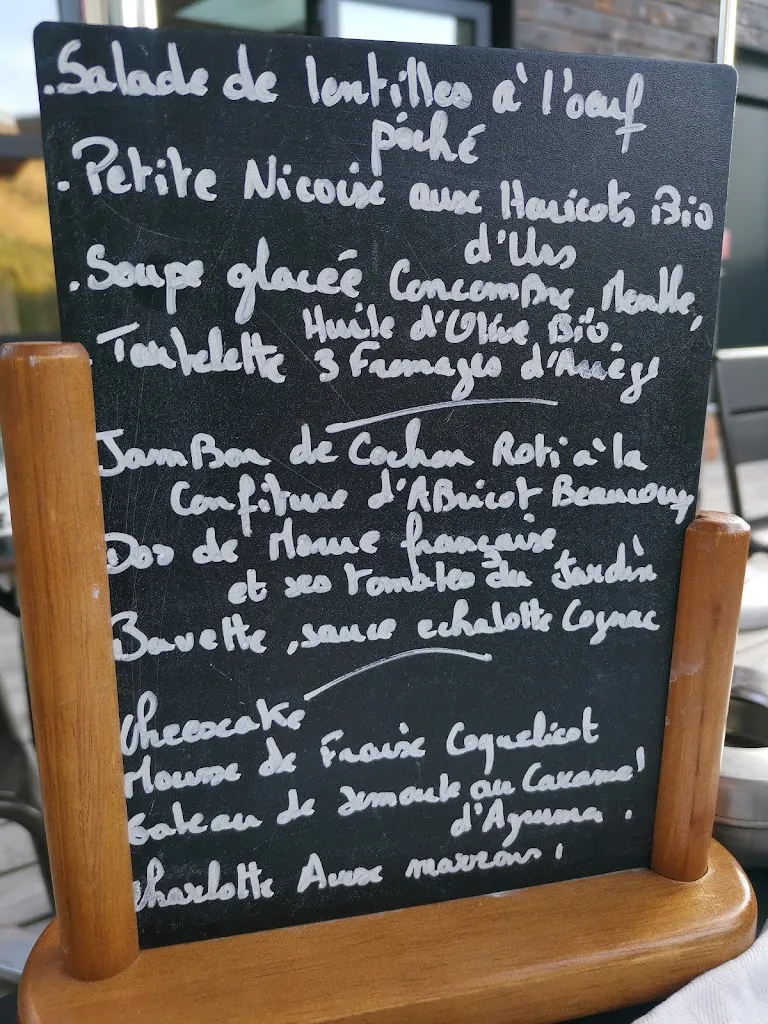 .Salade de lentilles à l'oeuf
póché
.Petite Nicoise aux Haricots Bio
d'Urs
.Soupe glacéé Concombre Menthe,
Huile d'Olive Bio
Tartelette 3 Fromages d'Ariège
Jambon de Cochon Roti à la
Confiture d'Abricot Beaucoup
Dos de Morue française
et ses tomates du Jardin
Bavette, sauce echalotte Cognac
Cheescake
Mousse de Fraise Coquelicot
Gateau de semoule au Caramel
d'Agrume.
Charlotte Aux marrons,